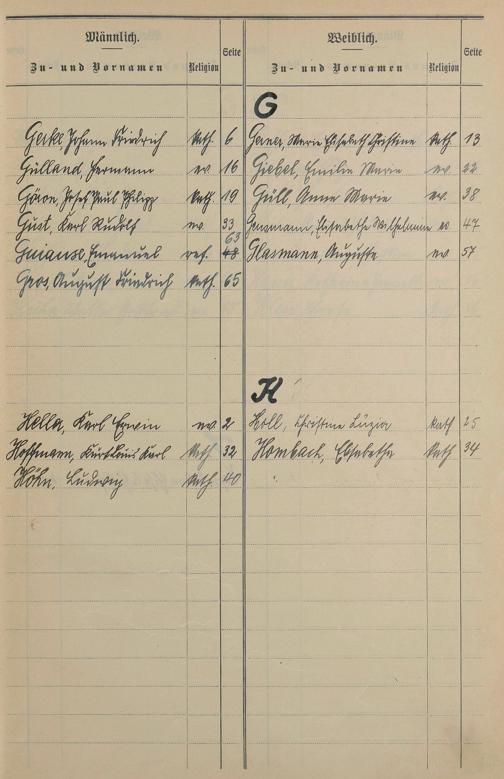 Männlich. Weiblich.
Zu- und Vornamen Religion Seite Zu- und Vornamen Religion Seite
G
Johann Friedrich kath. 6 Marie Elisabeth Christine kath. 13
Gülland, Hermann ev. 16 Giebel, Emilie Marie ev. 22
Josef Paul Philipp kath. 19 Güll, Anna Marie ev. 38
Gust, Karl Rudolf ev. 33 Elisabeth Wilhelmine ev 47
Emanuel ref. 48 63 Glasmann, Auguste ev 57
Gros, August Friedrich kath. 65
H
Hella, Karl Erwin ev. 2 Holl, Christine Luzia kath 25
Hoffmann, Karl kath. 32 Hombach, Elisabetha kath 34
Höhn, Ludwig kath. 40